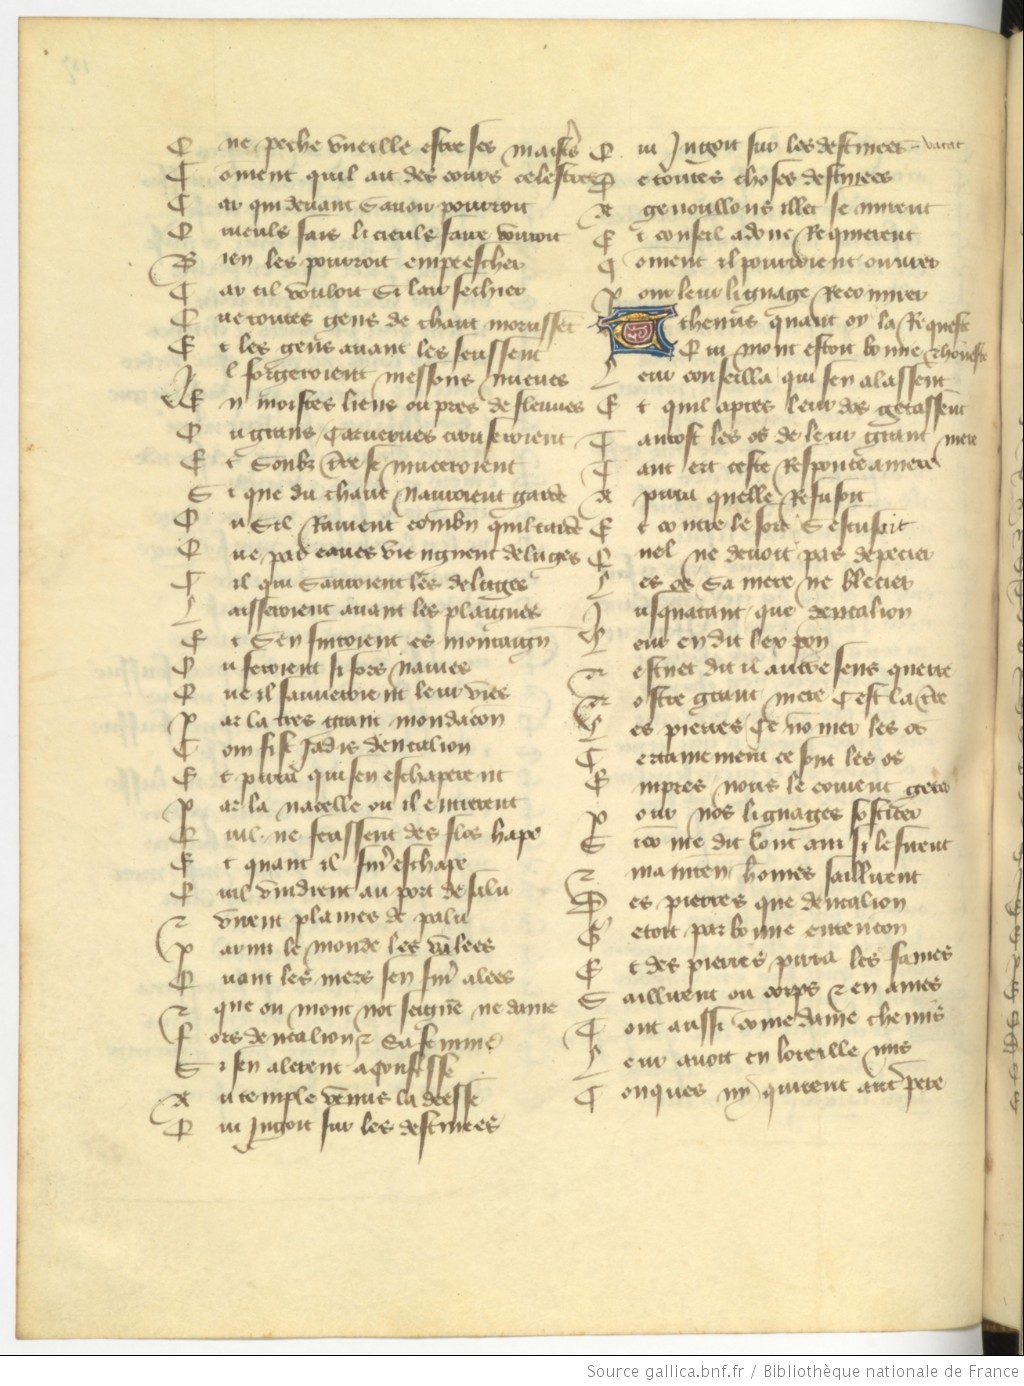 Q ne peche vueille estre ses maistres
C oment quil ait des cours celestres
C ar qui devant savoir pourroit
Q uieuls fais li cieuls faire vouroit
B ien les pourroit empeescher
C ar sil vouloit si lair sechier
Q ue toutes gens de chaut morussent
E t les gens avant les seussent
I l forgeroient messons nueves
E n moistes liens ou pres de fleuves
O u grans caruernes crouseroient
E t soubz terre se muceroient
S i que du chaut nauroient garde
O u sil ravient combn quil tarde
Q ue par eaues viengnent deluges
C il qui sauroient les deluges
L aisseroient avant les plaingnes
E t sen fuiroient es montaign
O u feroient si fors naives
Q ue il sauveroient leur vies
P ar la tres grant mondacon
C om fist jadis deucalion
E t pirra qui sen eschaperent
P ar la nacelle ou il entrerent
Q uil ne fussent des flos hape
E t quant il furent eschape
Q uil vindrent au port de salu
z virent plaines de palu
P armi le monde les valees
Q uant les mers sen furent alees
z que ou mont not seigneur ne dame
F ors deucalion z sa femme
S i sen alerent a confesse
A u temple venus la deesse
Q ui jugoit sur les destinees
Q ui jugoit sur les destinees - vacat
D e toutes choses destinees
A genoullons illec se mirent
E t conseil adonc requierent
Q oment il pourroient ouvrer
P our leur lignage recouvrer
T themis quant oy la requeste
Q ui mont estoit bonne z honneste
L eur conseilla qui sen alassent
E t quil apres leur dos getassent
T antost les os de leur grant mere
T ant ert ceste responce amere
A pirra quelle refusoit
E t contre le sort sescusoit
Q uel ne devoit pas depecier
L es os sa mere ne blecier
J usquatant que deucalion
L eur en dit lexpon
N estuet dit il autre sens querre
N ostre grant mere cest la terre
L es pierres ce nomer les os
C ertainement ce sont les os
E mpres nous le covient geter
P our nos lignages susciter
S i come dit lont ainsi le firent
z maintenant homes saillirent
D es pierres que deucalion
G etoit par bonne entencon
E t des pierres pirra les fames
S aillirent ou corps z en ames
T out aussi come dame themis
L eur avoit en loreille mis
C onques ny quirent autre pere